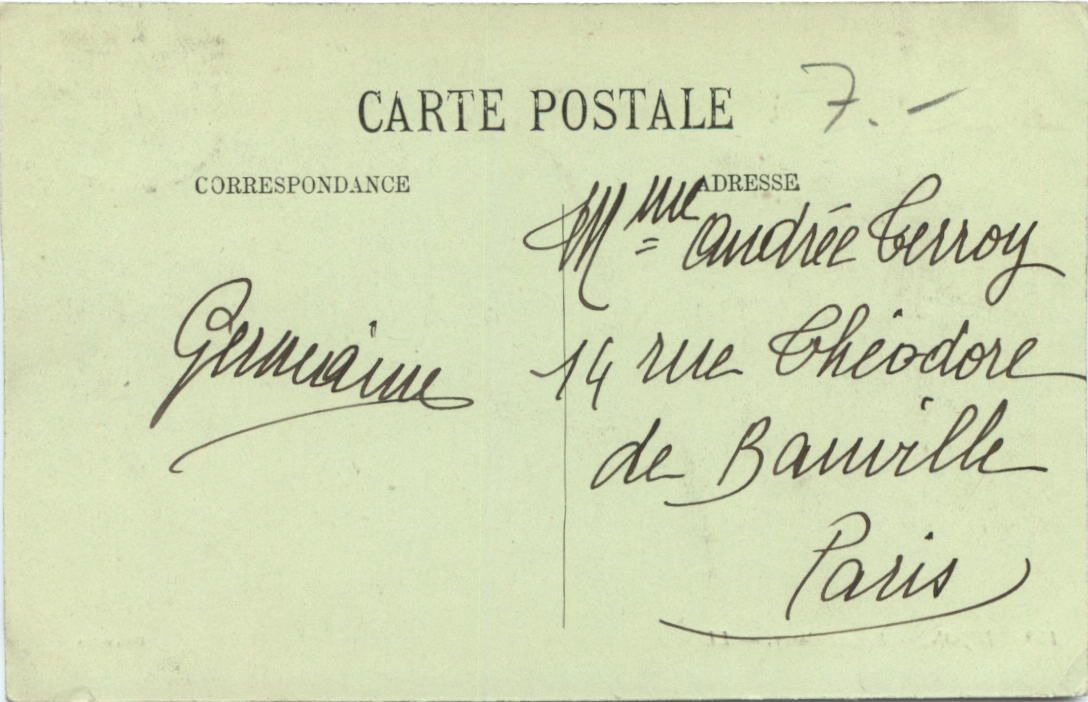 CARTE POSTALE
7.-
CORRESPONDANCE
ADRESSE
Mme Andrée Terroy
14 rue Théodore
de Banville
Paris
Germaine